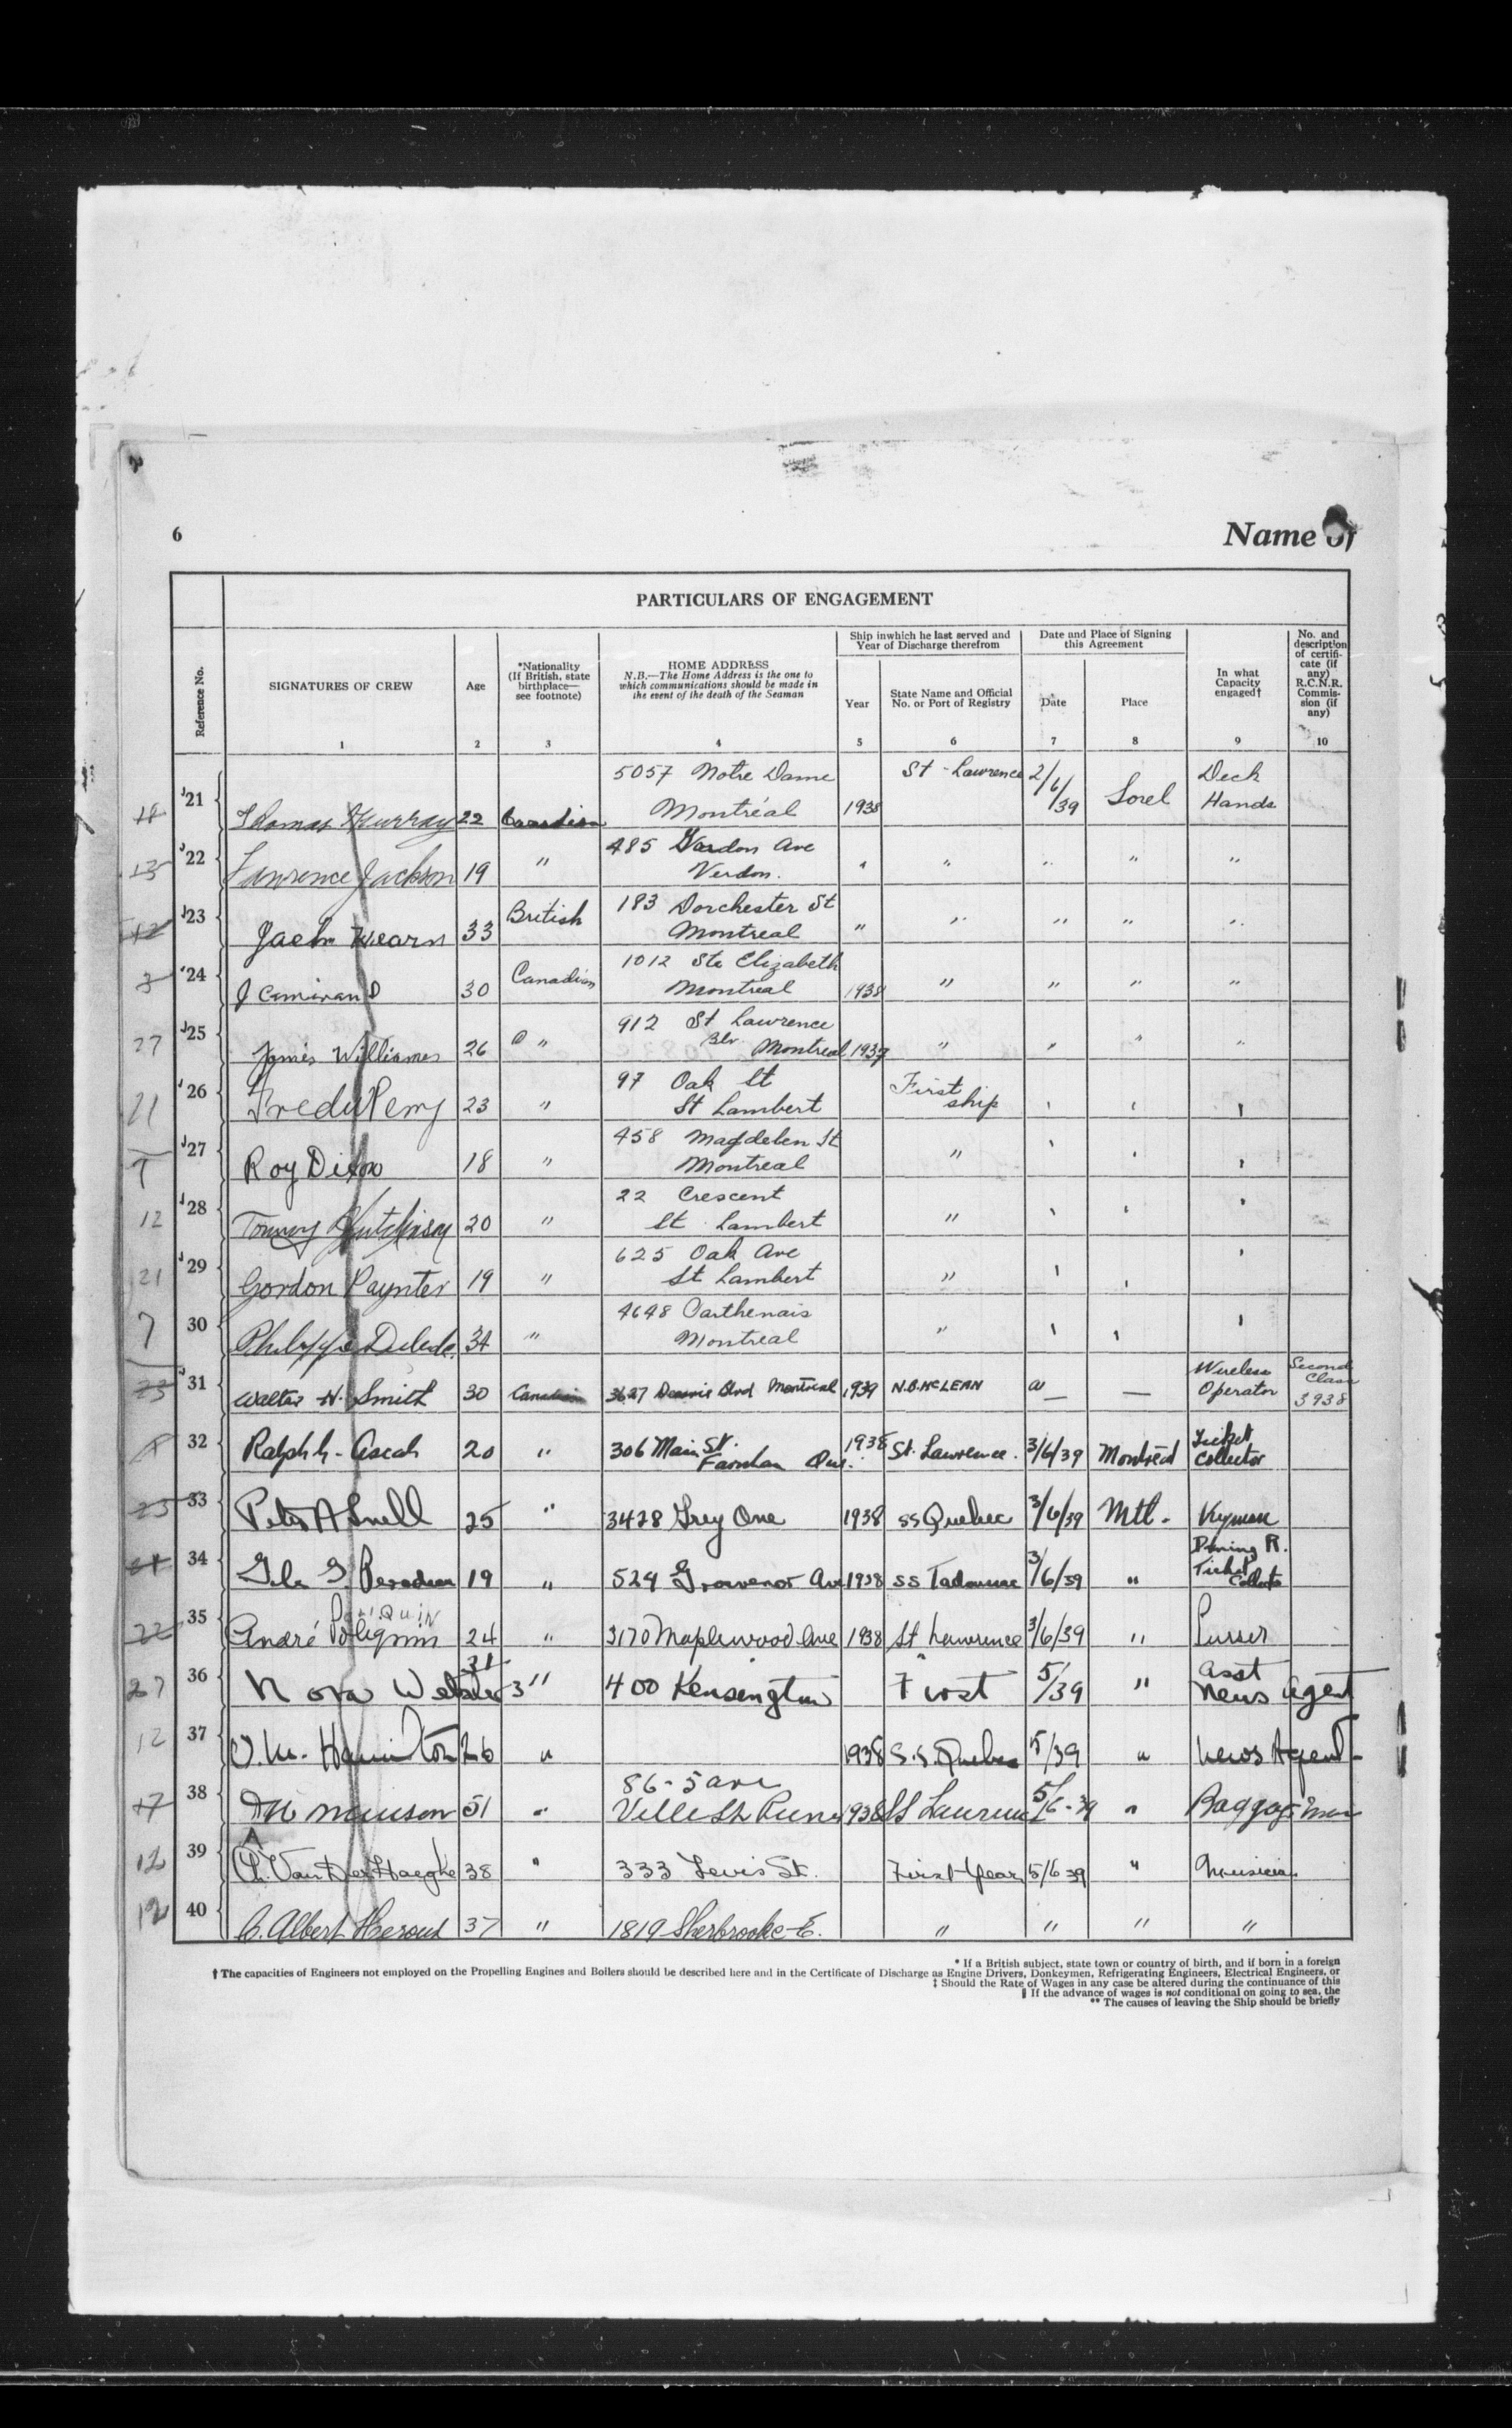 6
Name of
PARTICULARS OF ENGAGEMENT
Reference No.
SIGNATURES OF CREW
1
Age
2
*Nationality
(If British, state
birthplace—
see footnote)
3
HOME ADDRESS
N.B.—The Home Address is the one to
which communications should be made in
the event of the death of the Seaman
4
Ship inwhich he last served and
Year of Discharge therefrom
Year
5
State Name and Official
No. or Port of Registry
6
Date and Place of Signing
this Agreement
Date
7
Place
8
In what
Capacity
engaged†
9
No. and
description
of certifi-
cate (if
any)
R.C.N.R.
Commis-
sion (if
any)
10
21 Thomas Murray 22 Canadian 5057 Notre Dame Montréal 1938 St-Lawrence 2/6/39 Sorel Deck Hands
22 Lawrence Jackson 19 " 485 Verdon Ave Verdon. " " " " "
23 Jack Wearn 33 British 183 Dorchester St Montreal " " " " "
24 J Camirand 30 Canadian 1012 Ste Elizabeth Montreal 1938 " " " "
25 James Williams 26 " 912 St Lawrence Blv. Montreal 1937 " " " "
26 Perry 23 " 97 Oak St St Lambert First ship " " "
27 Roy Dixon 18 " 458 Magdelen St Montreal " " " "
28 Tommy Hutchison 20 " 22 Crescent St Lambert " " " "
29 Gordon Paynter 19 " 625 Oak Ave St Lambert " " " "
30 Philippe 34 " 4648 Parthenais Montreal " " " "
31 Walter H. Smith 30 Canadian 3627 Blvd Montreal 1939 N.B. McLEAN — — Wireless Operator Second Class 3938
32 Ralph h. Ascah 20 " 306 Main St. Farnham Que. 1938 St. Lawrence. 3/6/39 Montréal Ticket Collector
33 Peter A Snell 25 " 3428 Grey One 1938 SS Quebec 3/6/39 Mtl. Keyman
34 19 " 524 Grosvenor Ave 1938 SS Tadousac 3/6/39 " Dining R. Ticket Collector
35 André Poliquin 24 " 3170 Maplewood Ave 1938 St Lawrence 3/6/39 " Purser
36 Nora Webster 31 " 400 Kensington First 5/39 " Asst News Agent
37 Hamilton 26 " 1938 S.S. Quebec 5/39 " News Agent
38 51 " 86-5 ave Ville St Pierre 1938 St Laurence 5/6-39 " Baggage man
39 A. Van Der Haeghe 38 " 333 Levis St. First Year 5/6 39 " Musician
40 C. Albert Heroux 37 " 1819 Sherbrooke E. " " " "
* If a British subject, state town or country of birth, and if born in a foreign
† The capacities of Engineers not employed on the Propelling Engines and Boilers should be described here and in the Certificate of Discharge as Engine Drivers, Donkeymen, Refrigerating Engineers, Electrical Engineers, or
‡ Should the Rate of Wages in any case be altered during the continuance of this
‖ If the advance of wages is not conditional on going to sea, the
** The causes of leaving the Ship should be briefly